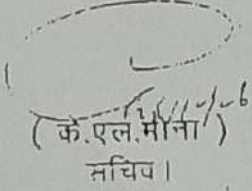 ( के.एल.मीना )
सचिव।